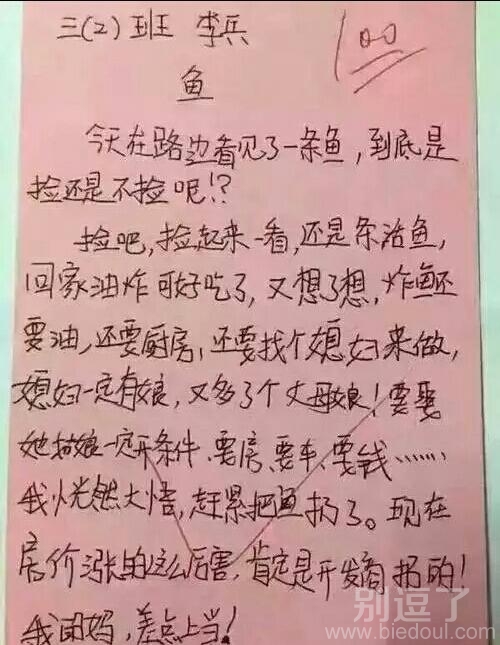 三(2)班 李兵
100
鱼
今天在路边看见了一条鱼,到底是
捡还是不捡呢!?
捡吧,捡起来一看,还是条活鱼,
回家油炸可好吃了,又想了想,炸鱼还
要油,还要厨房,还要找个媳妇来做,
媳妇一定有娘,又多了个丈母娘!要娶
她 娘一定开条件、要房、要车、要钱……
我恍然大悟,赶紧把鱼扔了。现在
房价涨的这么厉害,肯定是开发商扔的!
我 妈,差点上当!
别逗了
www.biedoul.com